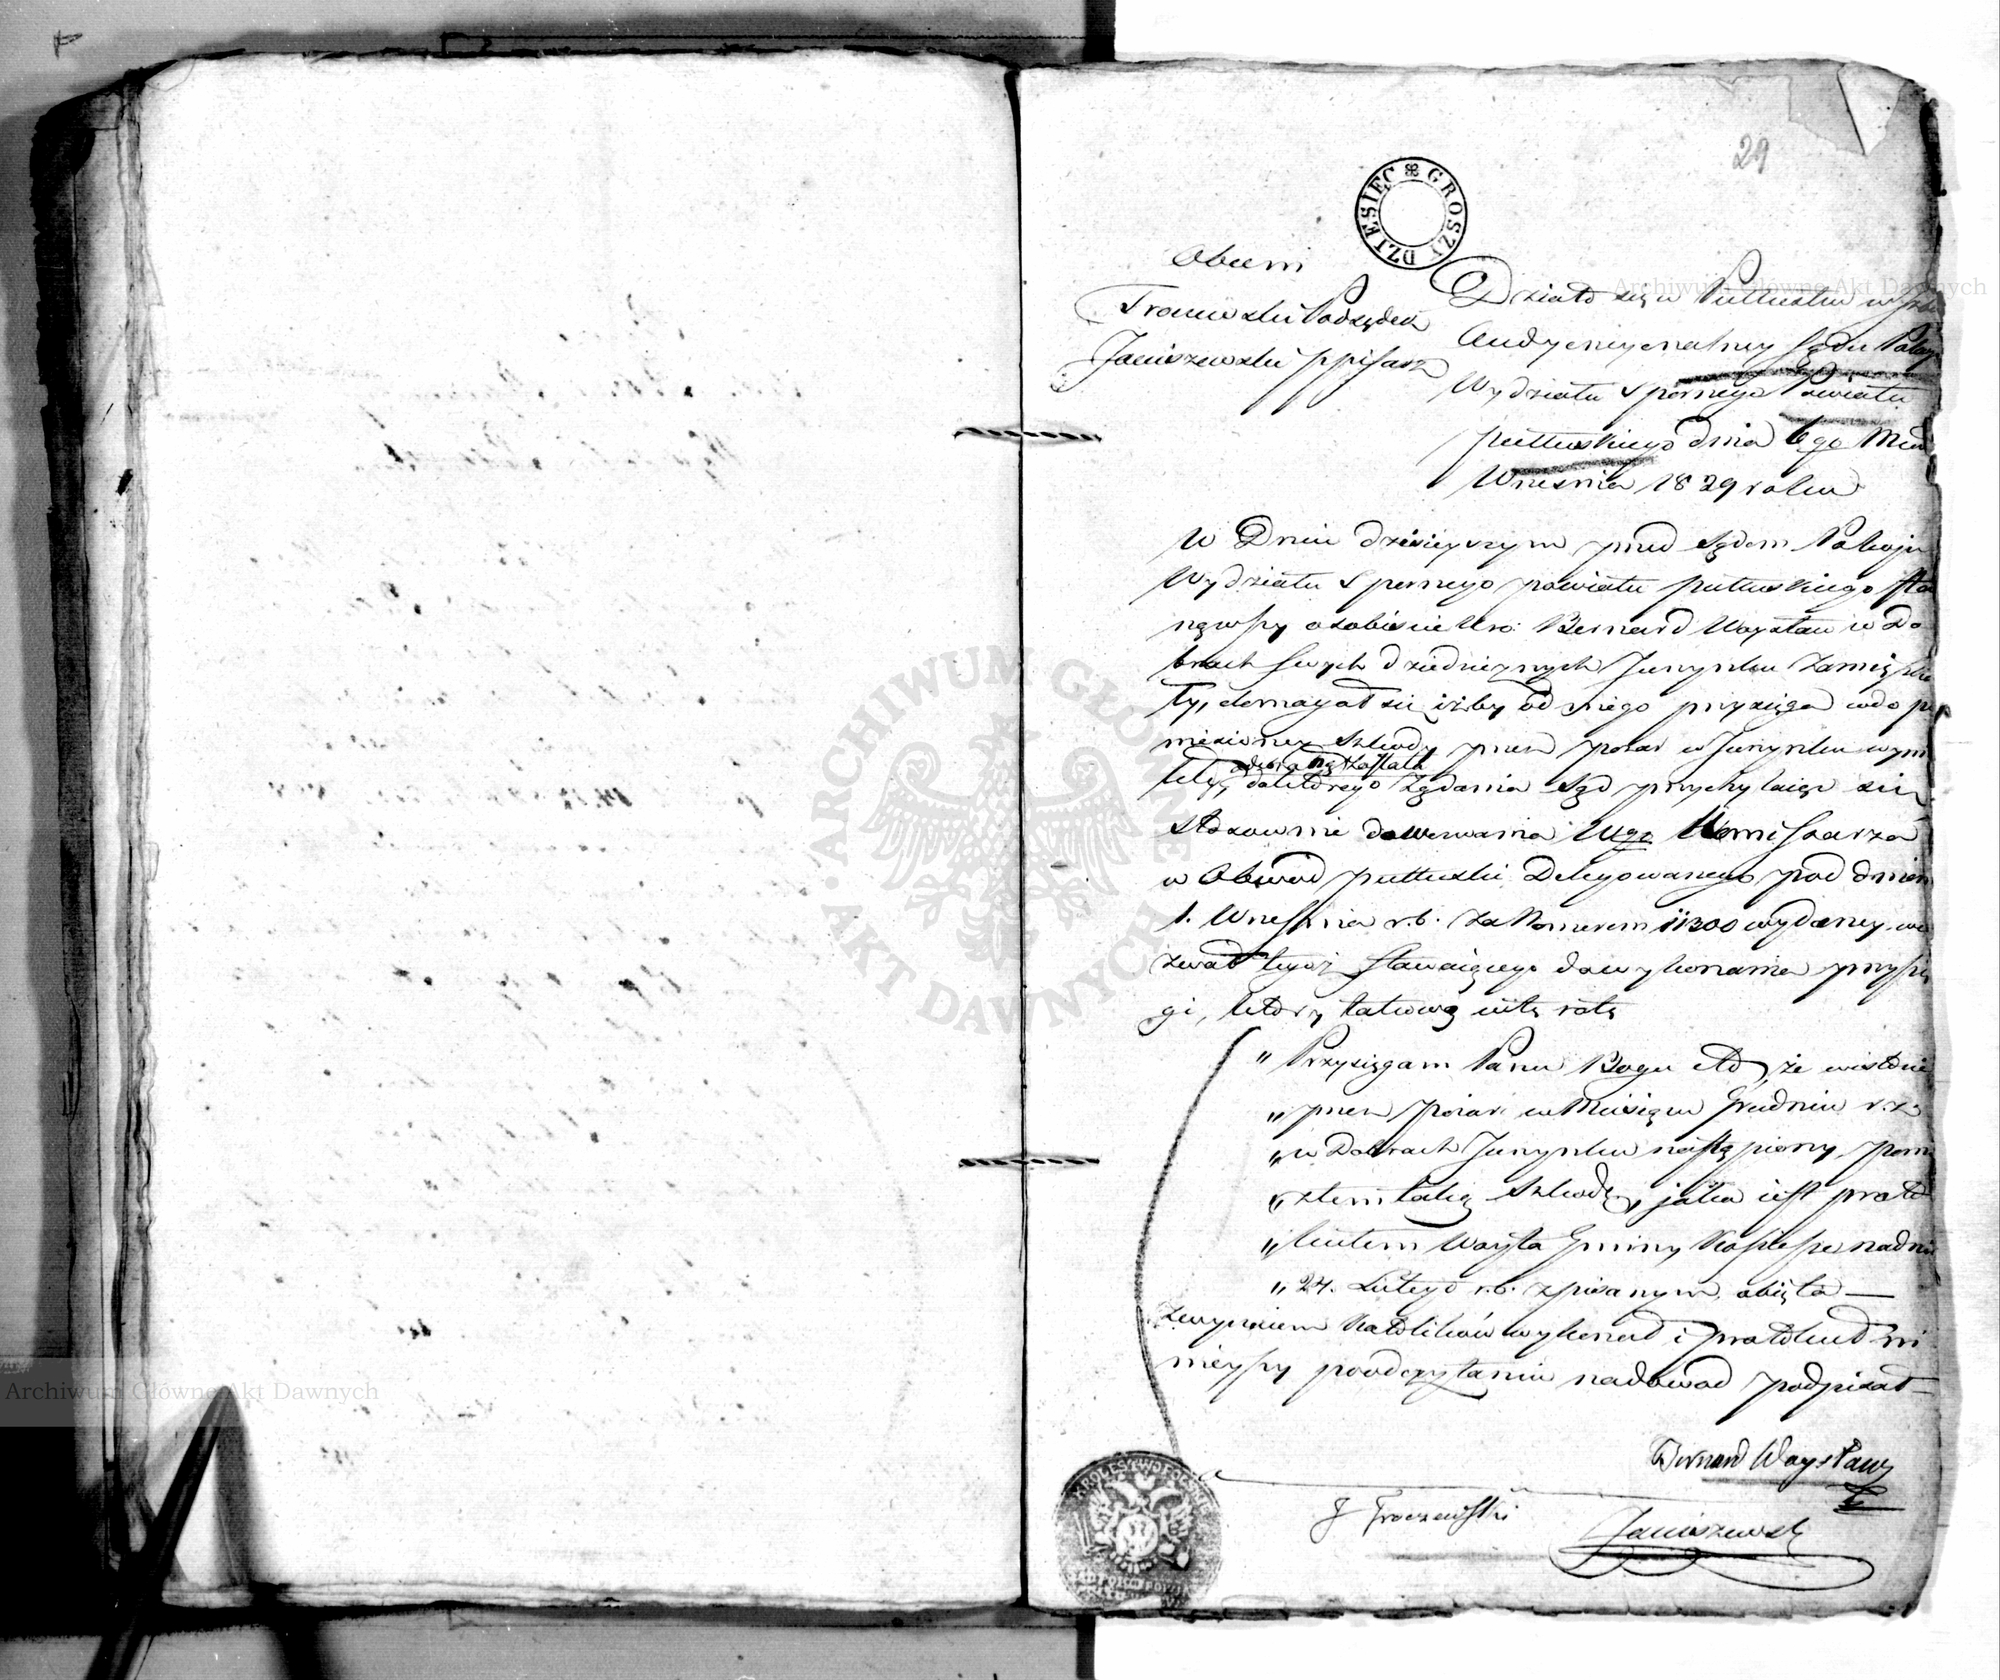 29
DZIESIĘC GROSZY
Obecni
Troczewski Podsędek
Janiszewski ppisarz
Działo się w Pułtusku w Izbie
Audyencyonalney Sądu Pokoju
Wydziału Spornego Powiatu
pułtuskiego dnia 6go Mca
Września 1829 roku
W Dniu dzisieyszym przed Sądem Pokoju
Wydziału Spornego powiatu pułtuskiego sta
nąwszy osobiście Uro: Bernard Woysław w Do
brach swych dziedzicznych zamięszka
ły, domagał się iżby od niego przysięga co do po
niesioney szkody przez pożar w wyni
kłey odebraną została
do którego żądania Sąd przychylaiąc się
stosownie do wezwania Wgo Kommissarza
w Obwód pułtuski Delegowanego pod dniem
1. Września r.b. za Numerem 11300 wydaney we
zwał tegoż stawaiącego do wykonania przysię
gi, który takową w tę rotę
" Przysięgam Panu Bogu etc, że istotnie
" przez pożar w Miesiącu Grudniu r.z.
" w Dobrach nastąpiony, ponio
" słem taką szkodę, jaka iest proto
" kułem Woyta Gminy na dniu
" 24. Lutego r.b. spisanym obięta —
zwyczaiem Katolików wykonał i protokuł ni
nieyszy po odczytaniu na dowód podpisał
Bernard Woysław
J Troczewski
Janiszewski
KRÓLESTWO POLSKIE
ARCHIWUM GŁÓWNE AKT DAWNYCH
Archiwum Główne Akt Dawnych
Archiwum Główne Akt Dawnych